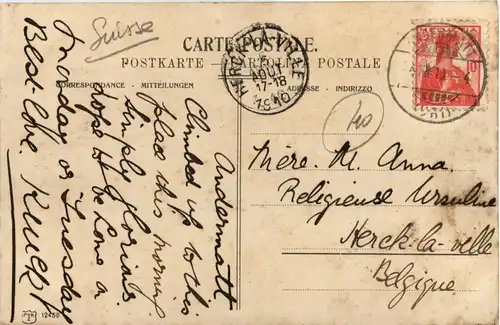 Suisse
CARTE POSTALE.
POSTKARTE – CARTOLINA POSTALE
CORRESPONDANCE - MITTEILUNGEN
ADRESSE - INDIRIZZO
HERCK-LA-VILLE
AOUT
17-18
1910
HELVETIA
Andermatt
Climbed up to this
place this morning
Simply glorious
Hope to be home on
Monday or Tuesday
Best love.
Mère. M. Anna.
Religieuse Ursuline
Herck-la-ville
Belgique
12459